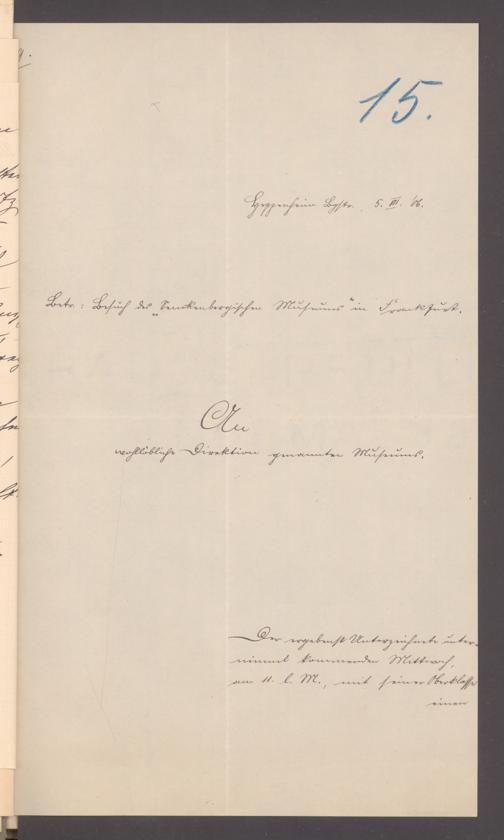 15.
Heppenheim Bgstr. 5. III. 08.
Betr.: Besuch des „Senckenbergischen Museums" in Frankfurt.
An
wohllöbliche Direktion genannten Museums.
Der ergebenst Unterzeichnete unter-
nimmt kommenden Mittwoch,
am 11. l. M., mit seiner Oberklasse
einen